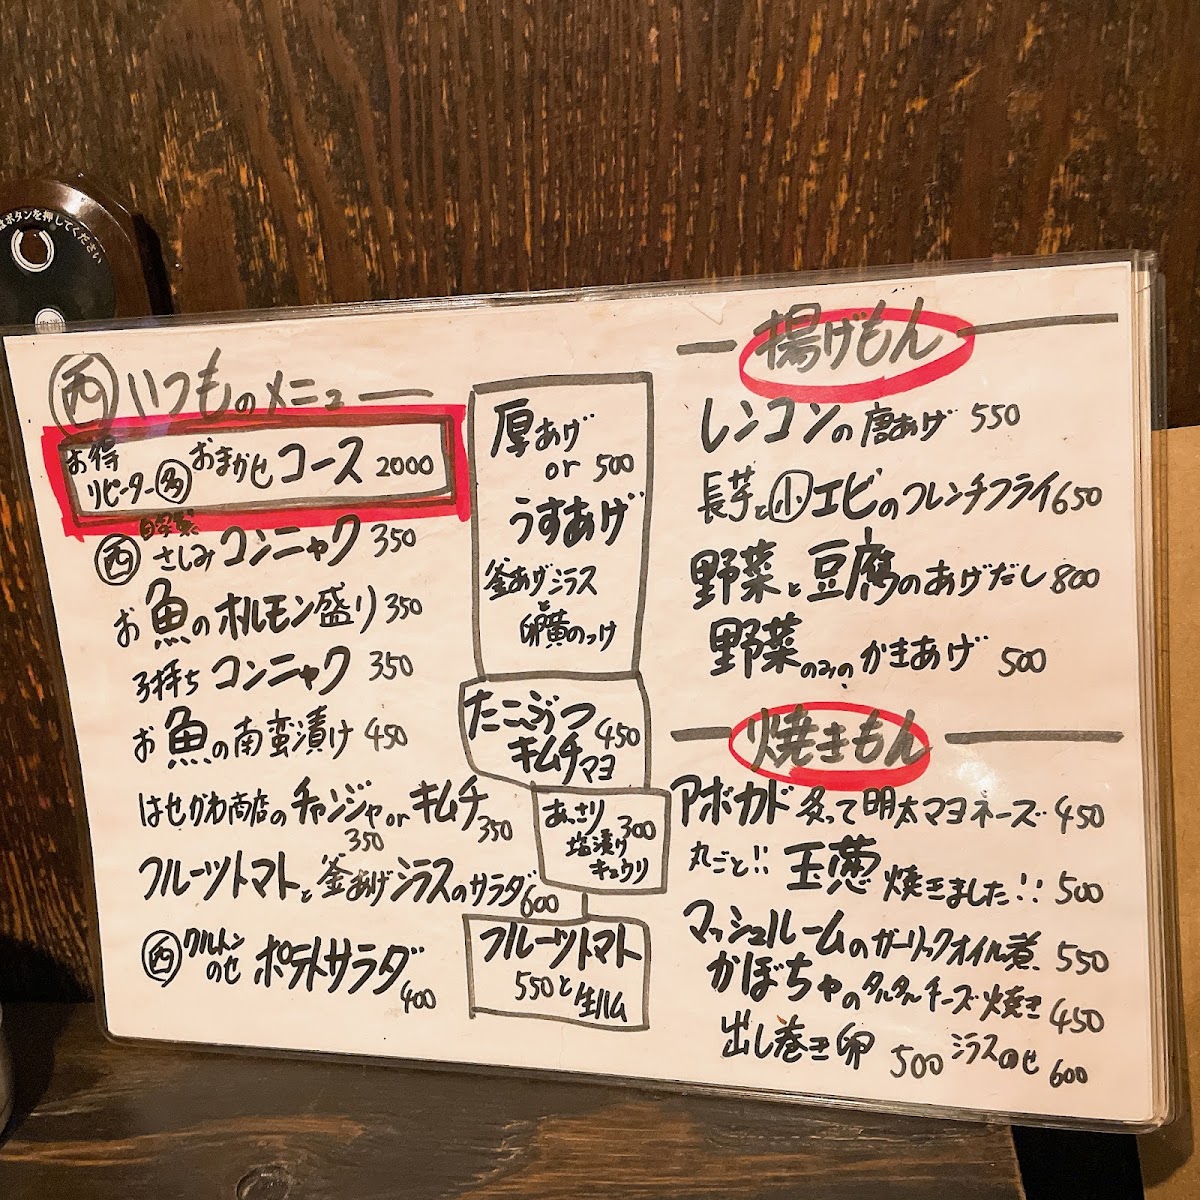 はボタンを押してください
西 いつものメニュー
お得
リピーター多 おまかせコース 2000
西 自家製
さしみコンニャク 350
お魚のホルモン盛り 350
子持ちコンニャク 350
お魚の南蛮漬け 450
はせがわ商店のチャンジャorキムチ
350 350
フルーツトマトと釜あげシラスのサラダ 600
西 クルトン
のせ ポテトサラダ 400
厚あげ
or 500
うすあげ
釜あげシラス
と
卵黄のっけ
たこぶつ
キムチマヨ 450
あっさり
塩漬け 300
キュウリ
フルーツトマト
550と生ハム
揚げもん
レンコンの唐あげ 550
長芋と小エビのフレンチフライ 650
野菜と豆腐のあげだし 800
野菜のみの、かきあげ 500
焼きもん
アボカド炙って明太マヨネーズ 450
丸ごと!!玉葱焼きました!! 500
マッシュルームのガーリックオイル煮 550
かぼちゃのタルタルチーズ焼き 450
出し巻き卵 500 シラスのせ 600